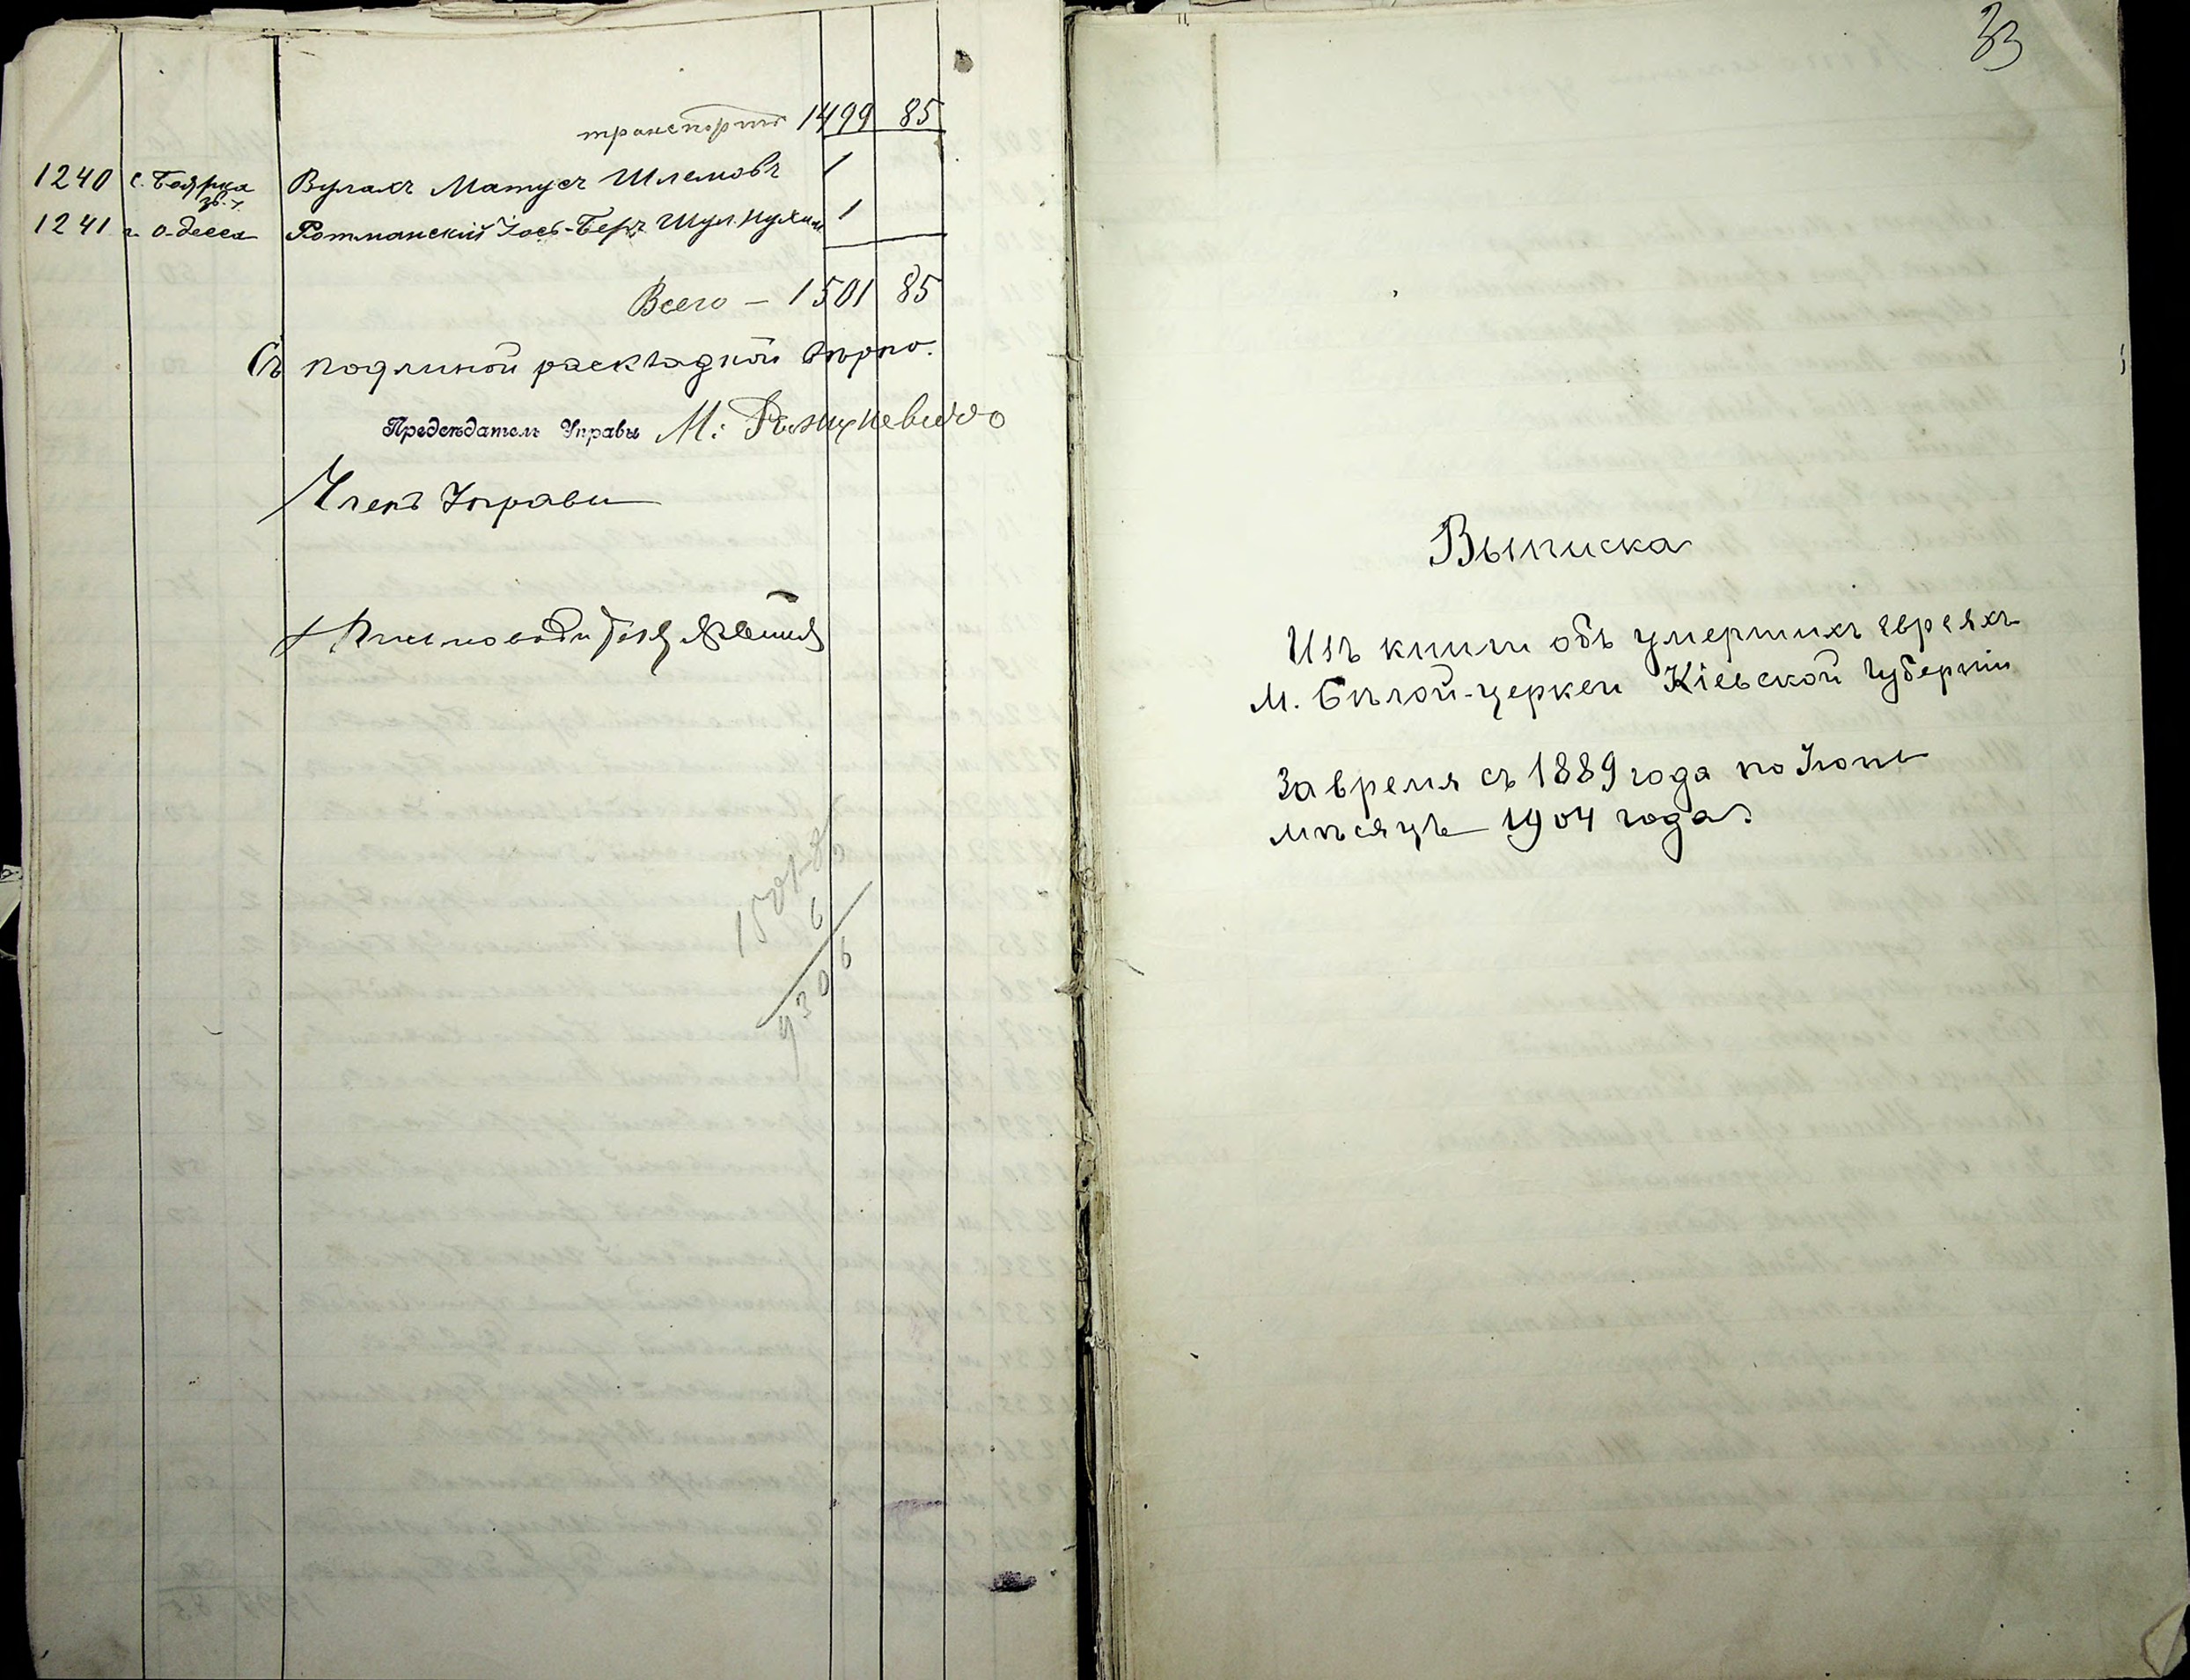 транспортъ 1499 85
1240 с. Боярка Вулахъ Матусъ Шлемовъ 1
зв. у.
1241 г. Одесса Ротманский Іось-Беръ Шул. Нухим 1
Всего — 1501 85
Съ подлиной раскладкой вѣрно.
Предсѣдатель Управы М:
Членъ Управы
Письмоводитель
1501-85
6
9306
33
Выписка
Изъ книги объ умершихъ евреяхъ
м. Бѣлой-Церкви Кіевской Губерніи
За время съ 1889 года по Іюнь
мѣсяцъ 1904 года.